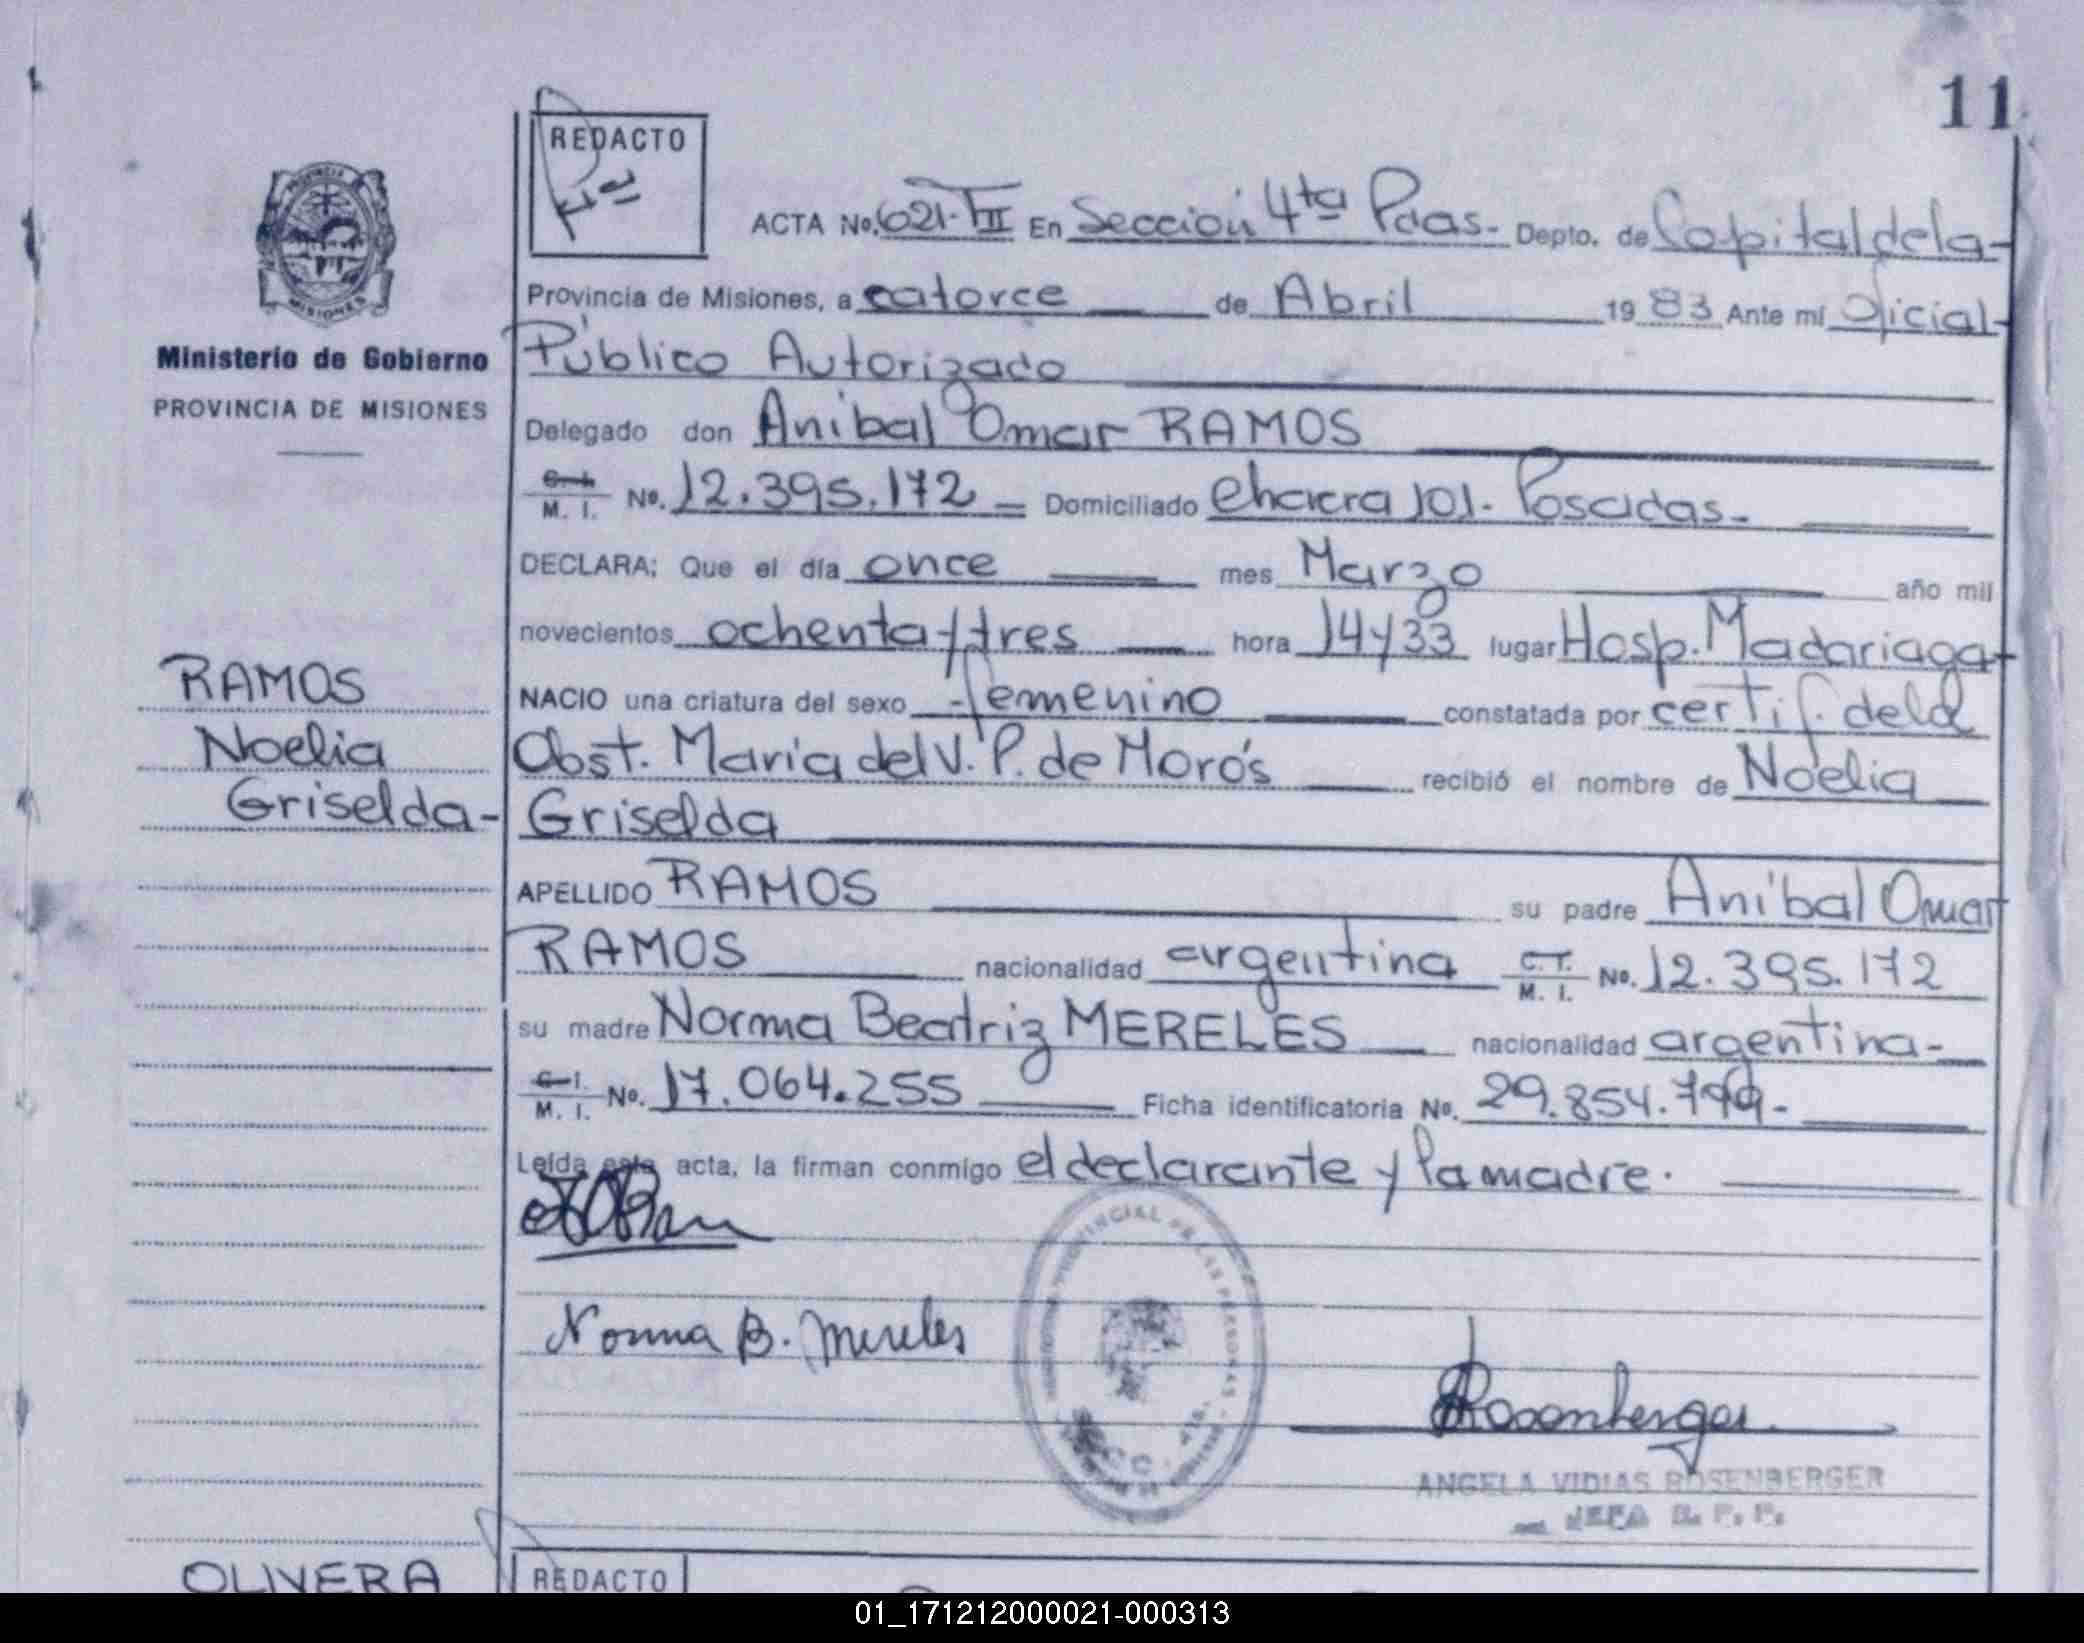 11
REDACTO
ACTA No. 621-TIII En Sección 4ta Pdas.- Depto. de Capital de la-
Provincia de Misiones, a catorce de Abril 1983 Ante mí Oficial-
Público Autorizado
Delegado don Aníbal Omar RAMOS
C. I. M. I. No. 12.395.172 = Domiciliado Chacra 101- Posadas-
DECLARA: Que el día once mes Marzo año mil
novecientos ochenta y tres hora 14 y 33 lugar Hosp. Madariaga
NACIO una criatura del sexo -femenino constatada por certif. de la
Obst. María del V. P. de Morós recibió el nombre de Noelia
Griselda
APELLIDO RAMOS su padre Aníbal Omar
RAMOS nacionalidad argentina C. I. M. I. No. 12.395.172
su madre Norma Beatriz MERELES nacionalidad argentina-
C. I. M. I. No. 17.064.255 Ficha identificatoria No. 29.854.799-
Leída este acta, la firman conmigo el declarante y la madre.
Norma B. Mereles
Rosenberger
ANGELA VIDIAS ROSENBERGER
JEFA R. P. P.
PROVINCIAL DE LAS PERSONAS
Ministerio de Gobierno
PROVINCIA DE MISIONES
RAMOS
Noelia
Griselda-
OLIVERA
REDACTO
01_171212000021-000313